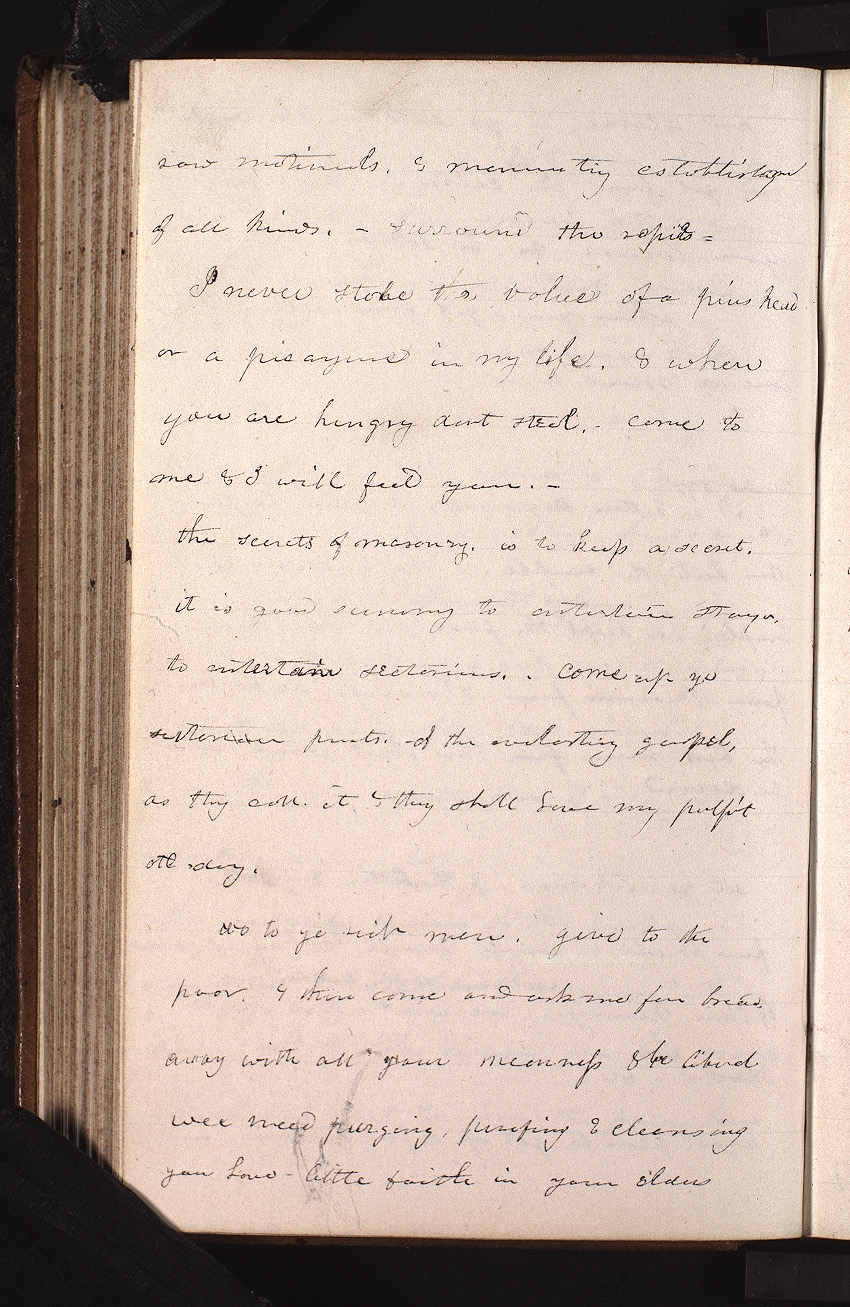 raw materials. & manufactⁱg establishmᵗ
of all kinds. - surround the rapids =
I never stole the value of a pins head
or a picayune in my life. & when
you are hungry dont steal. - come to
me & I will feed you. -
the secrets of masonry. is to keep a secret.
it is good economy to entertain strangrs.
to entertain sectarians. . come up ye
sectarian priests. of the everlasting gospel,
as they call. it & they shall have my pulpit
all day.
wo to ye rich men. give to the
poor. & then come and ask me for bread.
away with all your meanness & be liberal
wee need purging, purifing & cleansing
you have - little faith in your Elders